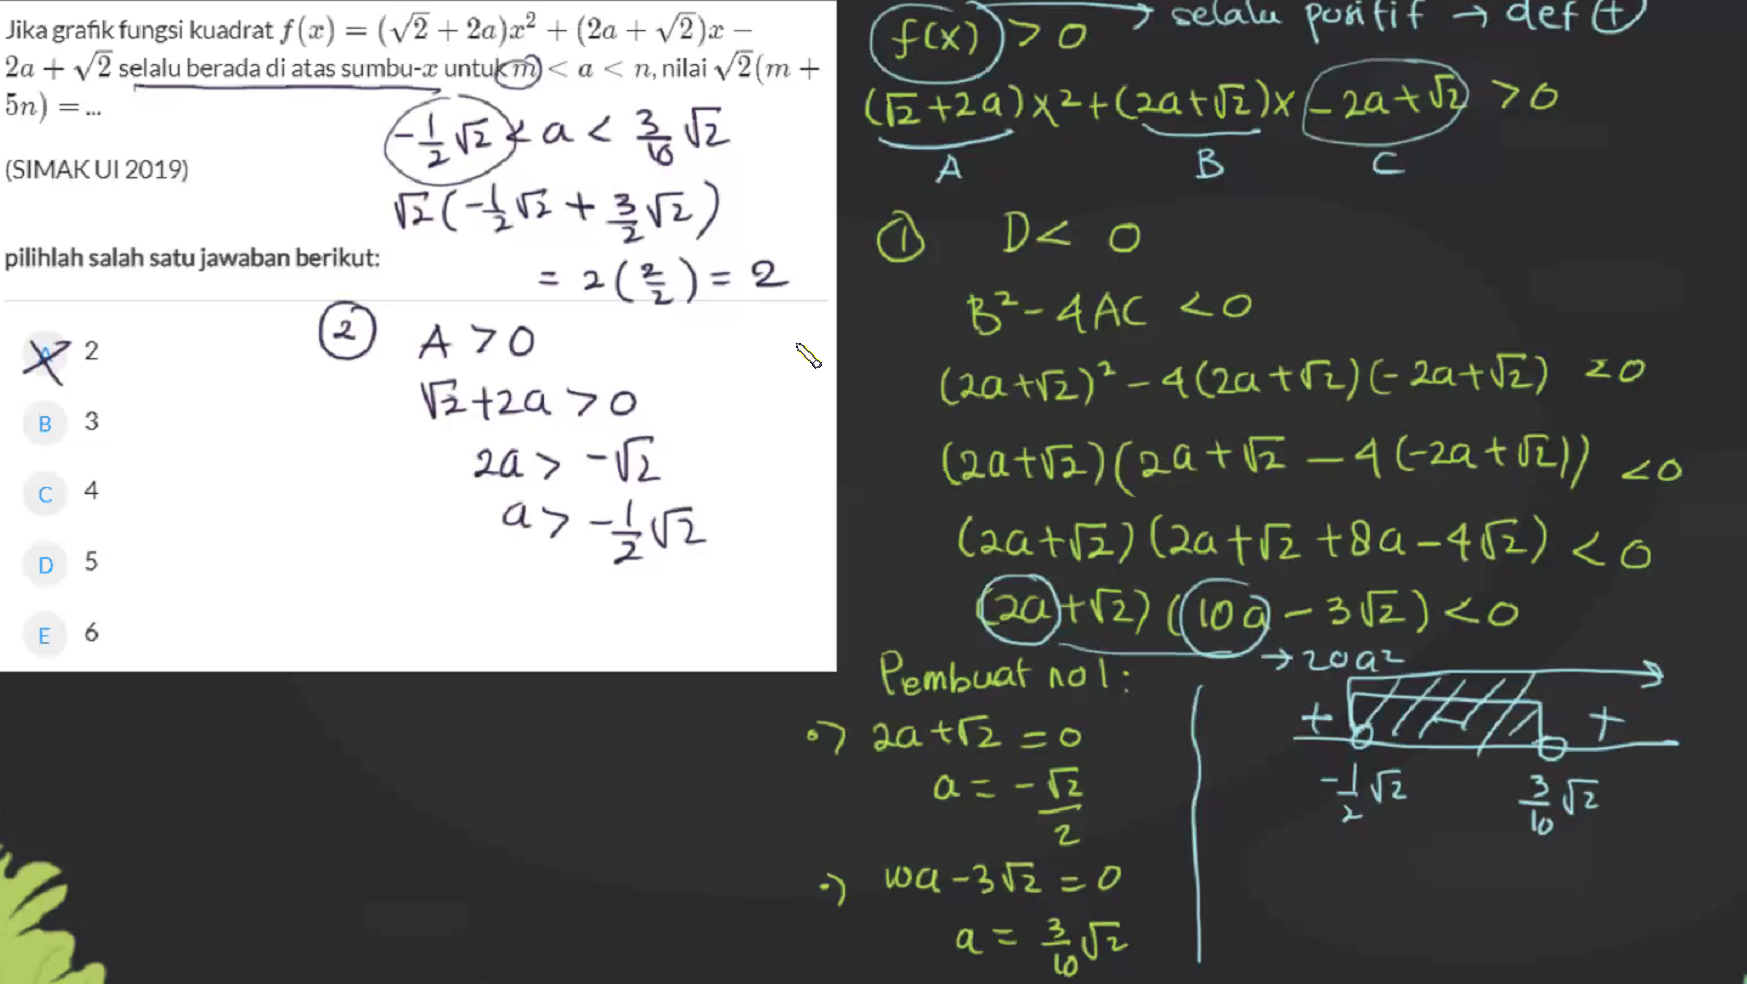 Jika grafik fungsi kuadrat f(x) = (√2 + 2a)x² + (2a + √2)x −
2a + √2 selalu berada di atas sumbu-x untuk m < a < n, nilai √2(m +
5n) = ...
(SIMAK UI 2019)
-1/2 √2 < a < 3/10 √2
√2(-1/2 √2 + 3/2 √2)
= 2(2/2) = 2
pilihlah salah satu jawaban berikut:
A 2
B 3
C 4
D 5
E 6
② A > 0
√2 + 2a > 0
2a > -√2
a > -1/2 √2
f(x) > 0 → selalu positif → def +
(√2 + 2a)x² + (2a + √2)x - 2a + √2 > 0
A B C
① D < 0
B² - 4AC < 0
(2a + √2)² - 4(2a + √2)(-2a + √2) < 0
(2a + √2)(2a + √2 - 4(-2a + √2)) < 0
(2a + √2)(2a + √2 + 8a - 4√2) < 0
(2a + √2)(10a - 3√2) < 0
→ 20a²
Pembuat nol :
•) 2a + √2 = 0
a = -√2/2
•) 10a - 3√2 = 0
a = 3/10 √2
+ - +
-1/2 √2 3/10 √2